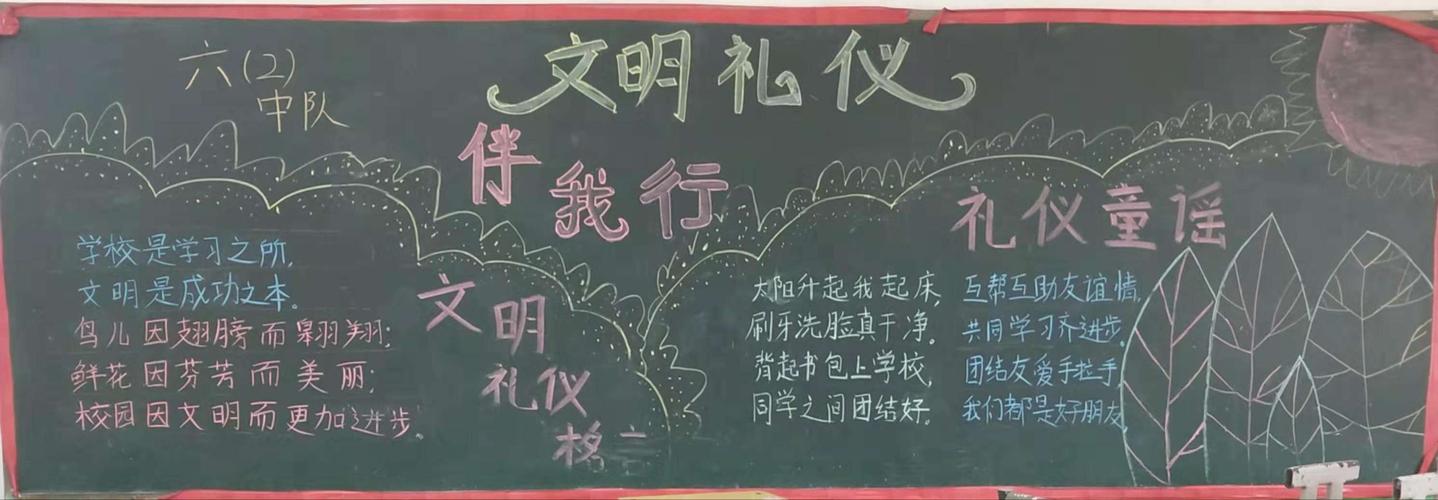 六(2)
中队
文明礼仪
伴我行
学校是学习之所,
文明是成功之本。
鸟儿因翅膀而翱翔;
鲜花因芬芳而美丽;
校园因文明而更加进步。
文明
礼仪
格言
礼仪童谣
太阳升起我起床,
刷牙洗脸真干净。
背起书包上学校,
同学之间团结好。
互帮互助友谊情,
共同学习齐进步。
团结友爱手拉手,
我们都是好朋友